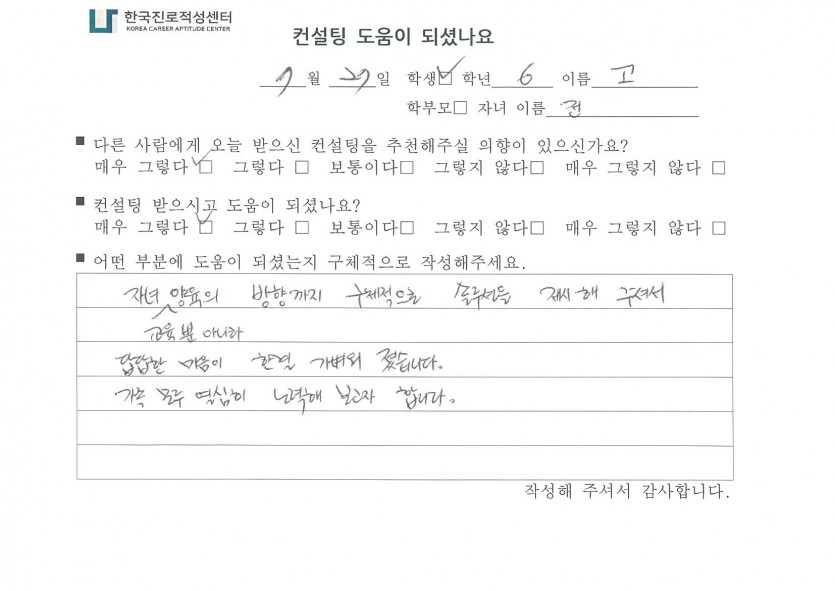 한국진로적성센터
KOREA CAREER APTITUDE CENTER
컨설팅 도움이 되셨나요
9월 27일 학생☑ 학년 6 이름 고
학부모□ 자녀 이름 전
■ 다른 사람에게 오늘 받으신 컨설팅을 추천해주실 의향이 있으신가요?
매우 그렇다 ☑ 그렇다 □ 보통이다□ 그렇지 않다□ 매우 그렇지 않다 □
■ 컨설팅 받으시고 도움이 되셨나요?
매우 그렇다 ☑ 그렇다 □ 보통이다□ 그렇지 않다□ 매우 그렇지 않다 □
■ 어떤 부분에 도움이 되셨는지 구체적으로 작성해주세요.
자녀 양육의 방향까지 구체적으로 솔루션을 제시해 주셔서
교육뿐 아니라
답답한 마음이 한결 가벼워 졌습니다.
가족 모두 열심히 노력해 보고자 합니다.
작성해 주셔서 감사합니다.